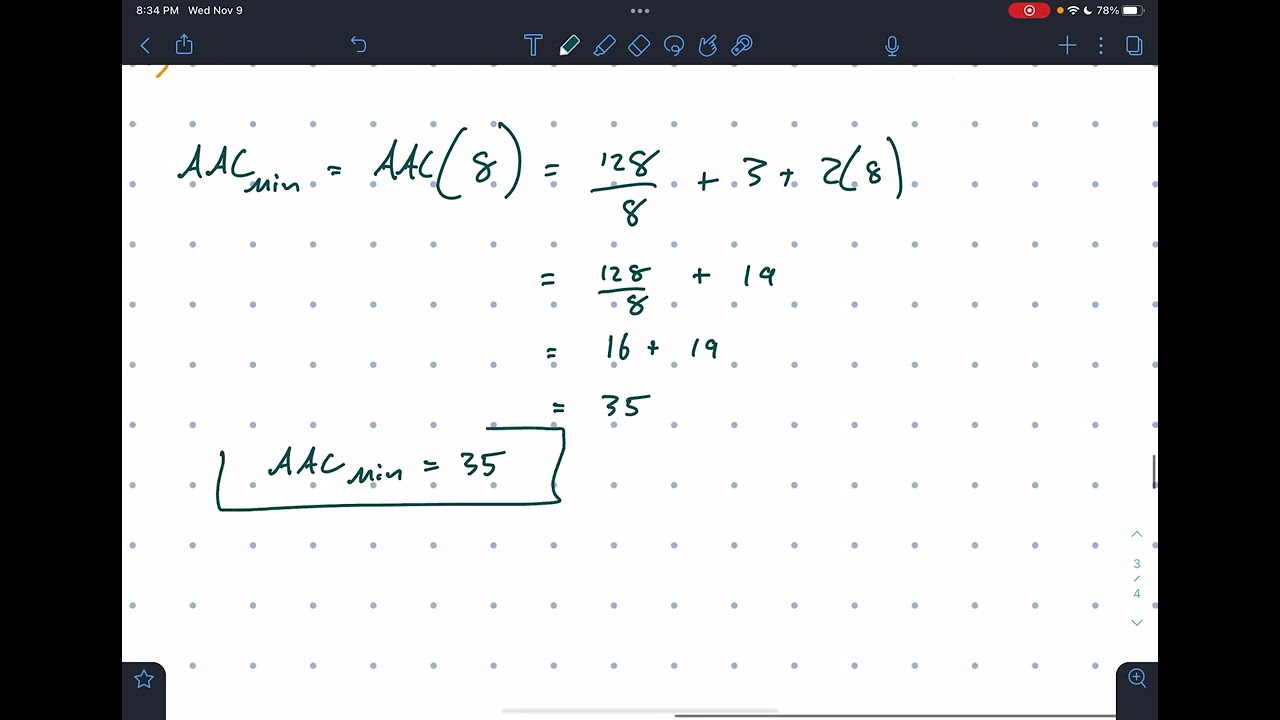 8:34 PM Wed Nov 9 78%
T
AAC min = AAC(8) = 128/8 + 3 + 2(8)
= 128/8 + 19
= 16 + 19
= 35
AAC min = 35
3
/
4